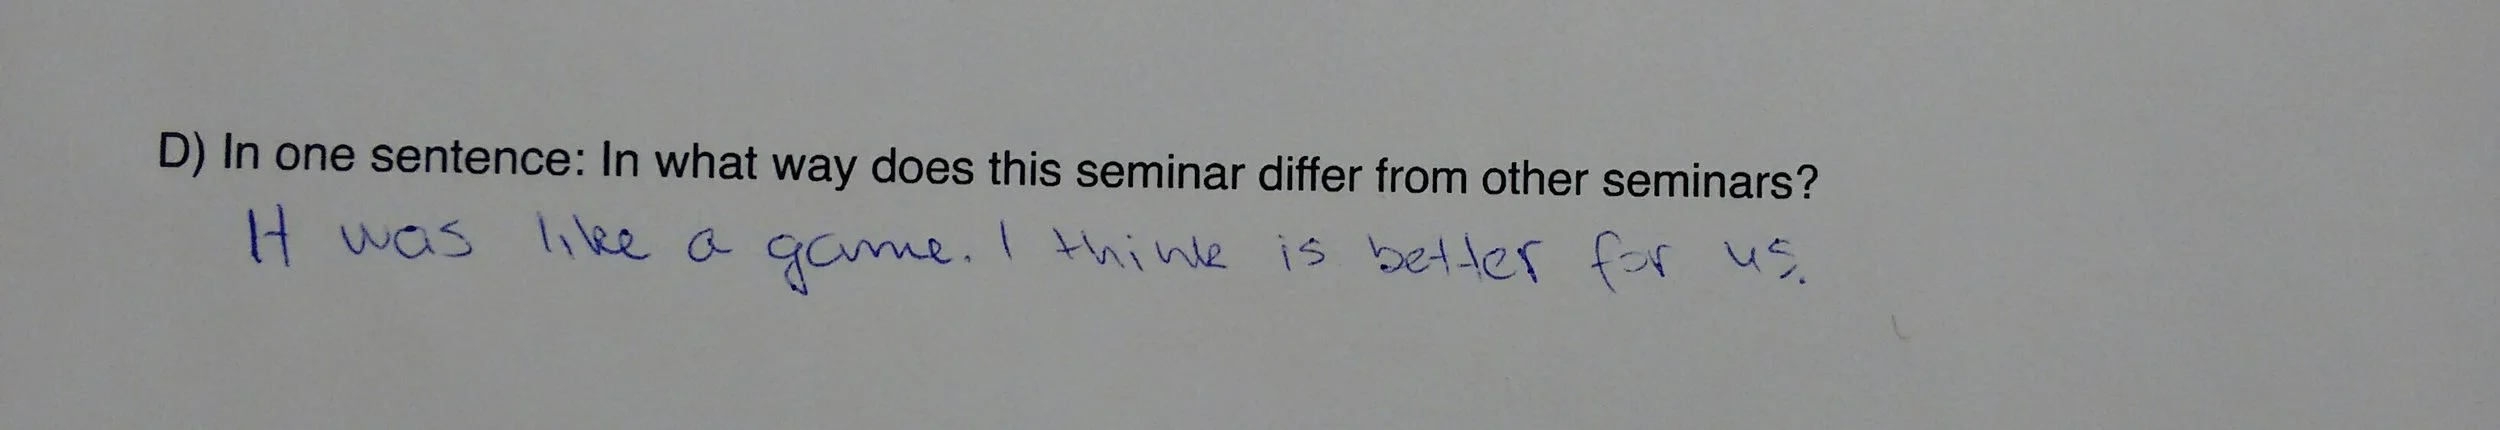 D) In one sentence: In what way does this seminar differ from other seminars?
It was like a game. I think is better for us.